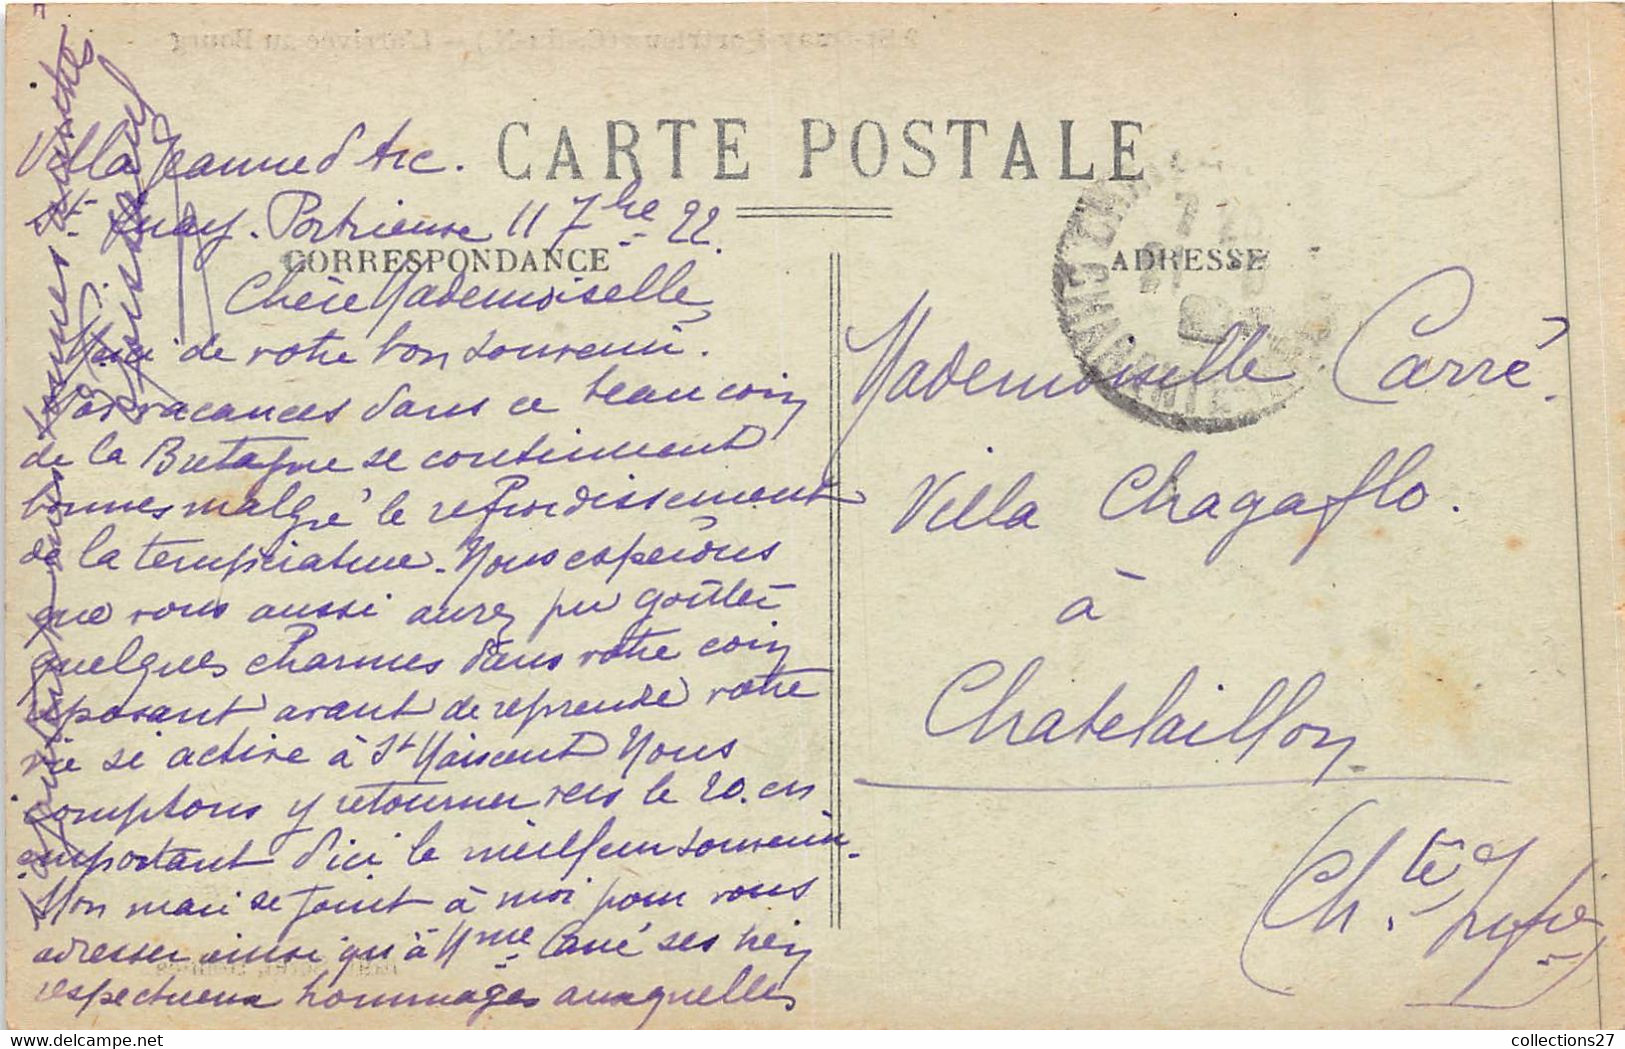 CARTE POSTALE
CORRESPONDANCE
Villa Jeanne d'Arc.
St Quay. Portrieux 11 7bre 22.
Chère Mademoiselle,
Merci de votre bon souvenir.
Nos vacances dans ce beau coin
de la Bretagne se continuent
bonnes malgré le refroidissement
de la température. Nous espérons
que vous aussi aurez pu goûter
quelques charmes dans votre coin
reposant avant de reprendre votre
vie si active à St Maixent Nous
comptons y retourner vers le 20. en
emportant d'ici le meilleur souvenir.
Mon mari se joint à moi pour vous
adresser ainsi qu'à Mme Carré ses
respectueux hommages auxquelles
bonnes amitiés
ADRESSE
Mademoiselle Carré.
Villa Chagaflo.
à
Chatelaillon
(Ch.te Infre)
collections27